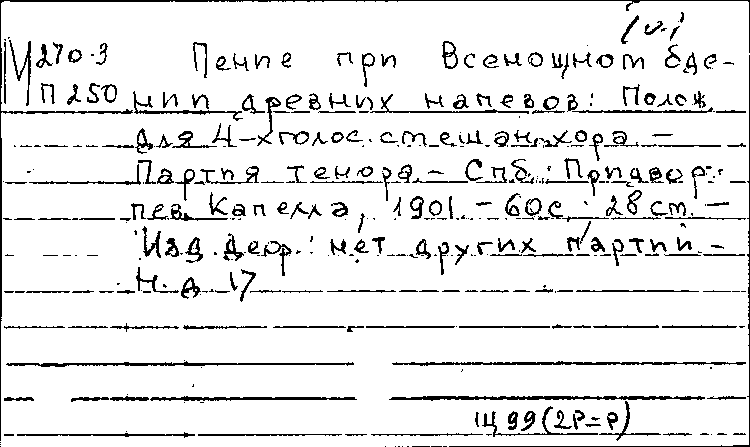 М 270-3
П 250
Пение при Всенощном бде-
нии древних напевов: Полож.
для 4-хголос. смешан. хора. –
Партия тенора. – Спб.: Придвор.
пев. Капелла, 1901. – 60с.; 28 см. –
Изд. деф.: нет других партий. –
Н. д. 17
Щ 99 (2Р=Р)